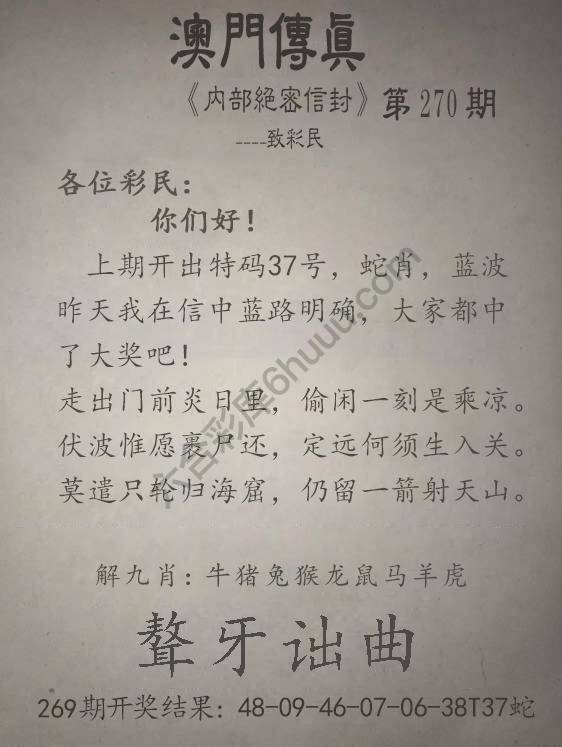 澳門傳眞
《内部絕密信封》第270期
----致彩民
各位彩民：
你们好！
上期开出特码37号，蛇肖，蓝波
昨天我在信中蓝路明确，大家都中
了大奖吧！
走出门前炎日里，偷闲一刻是乘凉。
伏波惟愿裹尸还，定远何须生入关。
莫遣只轮归海窟，仍留一箭射天山。
解九肖：牛猪兔猴龙鼠马羊虎
聱牙诎曲
269期开奖结果：48-09-46-07-06-38T37蛇
六合彩库6huuu.com